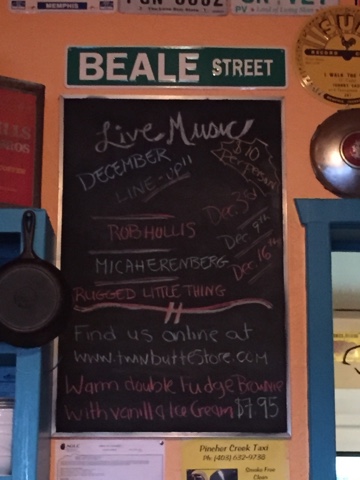 MEMPHIS
BEALE STREET
SUN
RECORD
I WALK THE
Live Music
DECEMBER
LINE-UP!!
$10
ROB HOLLIS Dec. 3rd
MICAH ERENBERG Dec. 9th
RUGGED LITTLE THING Dec. 16th
Find us online at
www.twinbuttestore.com
Warm double Fudge Brownie
with vanilla Ice Cream $7.95
Pincher Creek Taxi
Ph. (403) 632-9738
Smoke Free
Clean